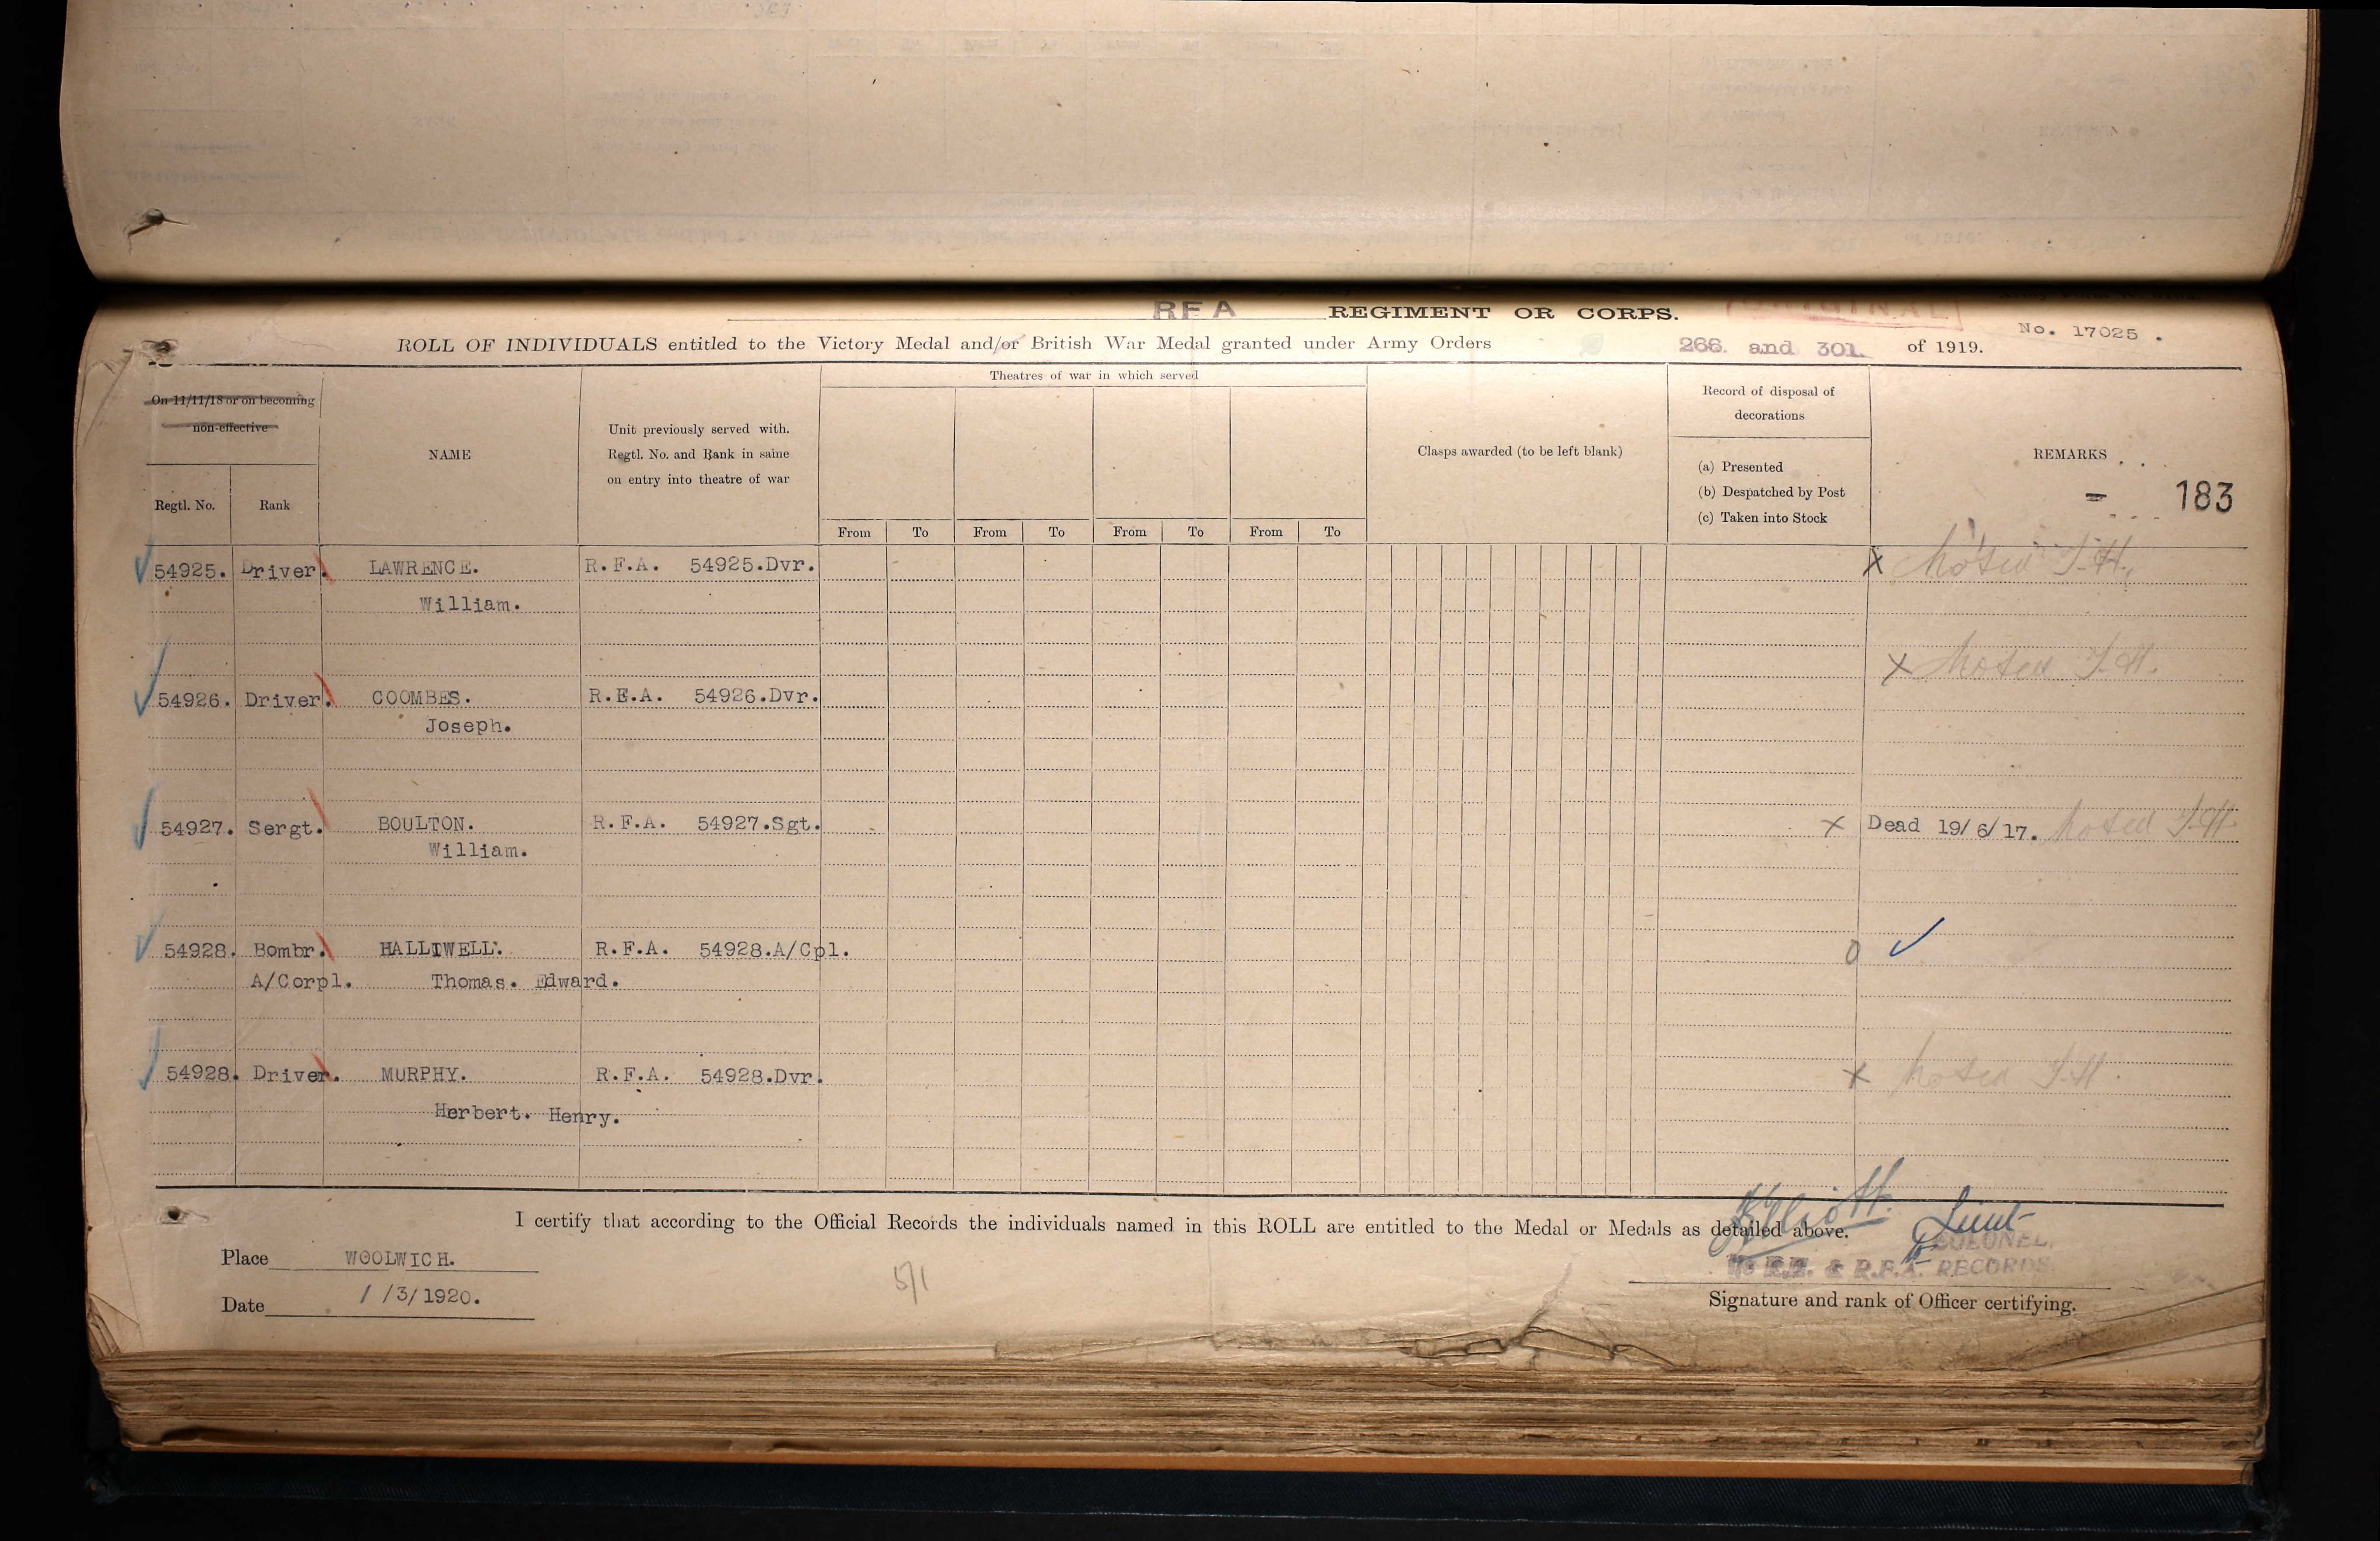 RFA REGIMENT OR CORPS.
ORIGINAL
No. 17025.
ROLL OF INDIVIDUALS entitled to the Victory Medal and/or British War Medal granted under Army Orders 266. and 301. of 1919.
On 11/11/18 or on becoming
non-effective
Regtl. No.
Rank
NAME
Unit previously served with.
Regtl. No. and Rank in saine
on entry into theatre of war
Theatres of war in which served
From To From To From To From To
Clasps awarded (to be left blank)
Record of disposal of
decorations
(a) Presented
(b) Despatched by Post
(c) Taken into Stock
REMARKS
183
54925. Driver. LAWRENCE. R.F.A. 54925.Dvr. X Noted J.H.
William.
X Noted J.H.
54926. Driver. COOMBES. R.E.A. 54926.Dvr.
Joseph.
54927. Sergt. BOULTON. R.F.A. 54927.Sgt. X Dead 19/6/17. Noted J.H.
William.
54928. Bombr. HALLIWELL. R.F.A. 54928.A/Cpl. O ✓
A/Corpl. Thomas. Edward.
54928. Driver. MURPHY. R.F.A. 54928.Dvr. X Noted J.H.
Herbert. Henry.
I certify that according to the Official Records the individuals named in this ROLL are entitled to the Medal or Medals as detailed above.
Lieut
COLONEL.
& R.F.A. RECORDS
Place WOOLWICH.
5/1
Date 1/3/1920.
Signature and rank of Officer certifying.